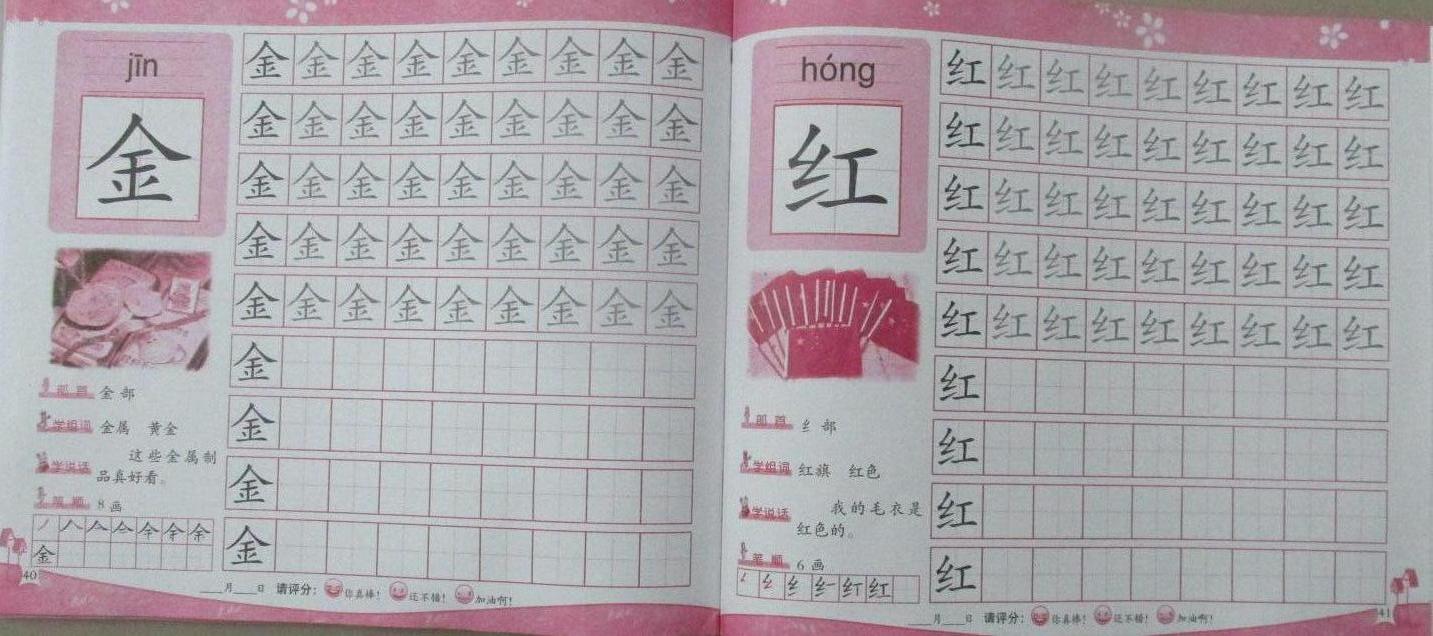 jīn
金
金 金 金 金 金 金 金 金 金
金 金 金 金 金 金 金 金 金
金 金 金 金 金 金 金 金 金
金 金 金 金 金 金 金 金 金
金 金 金 金 金 金 金 金 金
金
金
金
金
部首 金部
学组词 金属 黄金
学说话 这些金属制
品真好看。
笔顺 8画
金
40
___月___日 请评分： 你真棒！ 还不错！ 加油啊！
hóng
红
红 红 红 红 红 红 红 红 红
红 红 红 红 红 红 红 红 红
红 红 红 红 红 红 红 红 红
红 红 红 红 红 红 红 红 红
红 红 红 红 红 红 红 红 红
红
红
红
红
部首 纟部
学组词 红旗 红色
学说话 我的毛衣是
红色的。
笔顺 6画
红
41
___月___日 请评分： 你真棒！ 还不错！ 加油啊！